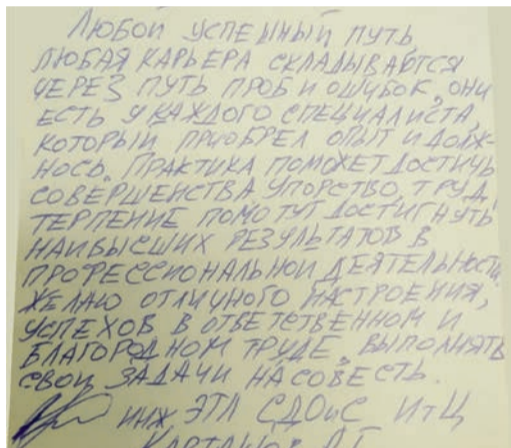 ЛЮБОЙ УСПЕШНЫЙ ПУТЬ
ЛЮБАЯ КАРЬЕРА СКЛАДЫВАЮТСЯ
ЧЕРЕЗ ПУТЬ ПРОБ И ОШИБОК, ОНИ
ЕСТЬ У КАЖДОГО СПЕЦИАЛИСТА,
КОТОРЫЙ ПРИОБРЕЛ ОПЫТ И ДОЛЖ-
НОСЬ. ПРАКТИКА ПОМОЖЕТ ДОСТИЧЬ
СОВЕРШЕНСТВА. УПОРСТВО, ТРУД,
ТЕРПЕНИЕ ПОМОГУТ ДОСТИГНУТЬ
НАИВЫСШИХ РЕЗУЛЬТАТОВ В
ПРОФЕССИОНАЛЬНОЙ ДЕЯТЕЛЬНОСТИ.
ЖЕЛАЮ ОТЛИЧНОГО НАСТРОЕНИЯ,
УСПЕХОВ В ОТВЕТСТВЕННОМ И
БЛАГОРОДНОМ ТРУДЕ. ВЫПОЛНЯТЬ
СВОИ ЗАДАЧИ НА СОВЕСТЬ.
ИНЖ ЭТЛ СДОиС ИТЦ